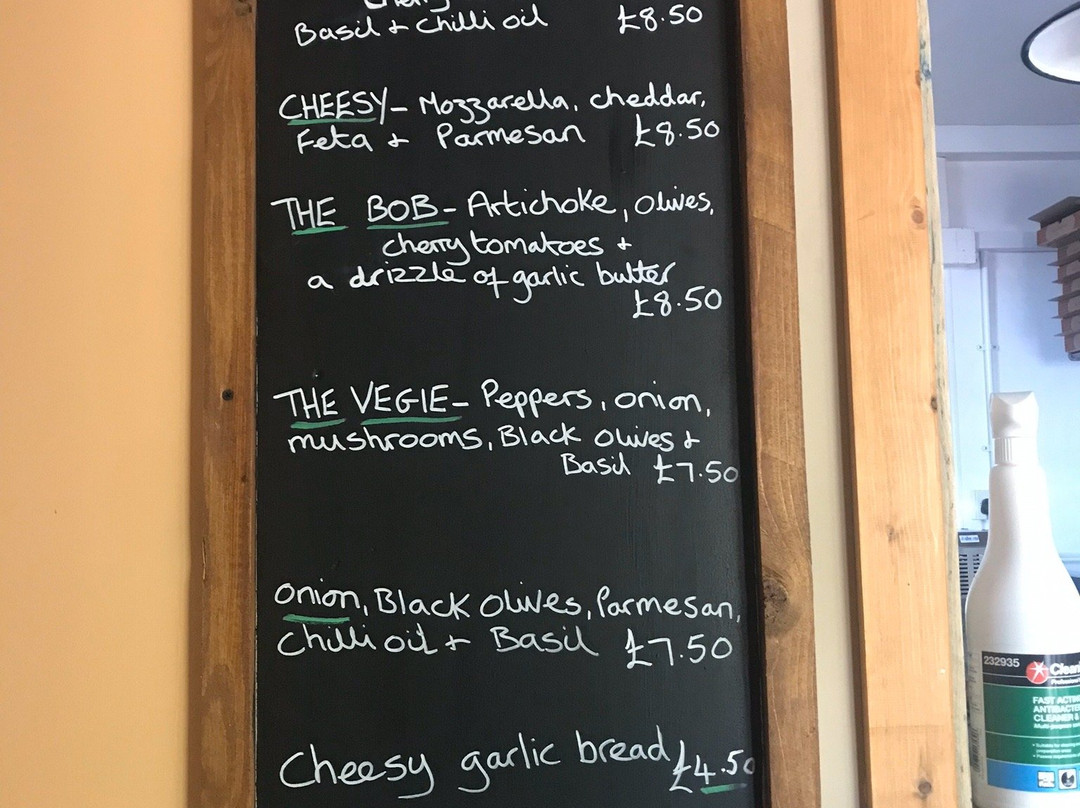 Cherry
Basil + Chilli oil £8.50
CHEESY- Mozzarella, cheddar,
Feta + Parmesan £8.50
THE BOB- Artichoke, olives,
cherry tomatoes +
a drizzle of garlic butter
£8.50
THE VEGIE- Peppers, onion,
mushrooms, Black olives +
Basil £7.50
onion, Black olives, Parmesan,
Chilli oil + Basil £7.50
Cheesy garlic bread £4.50
232935
Clean
Professional
FAST ACTIN
ANTIBACTE
CLEANER &